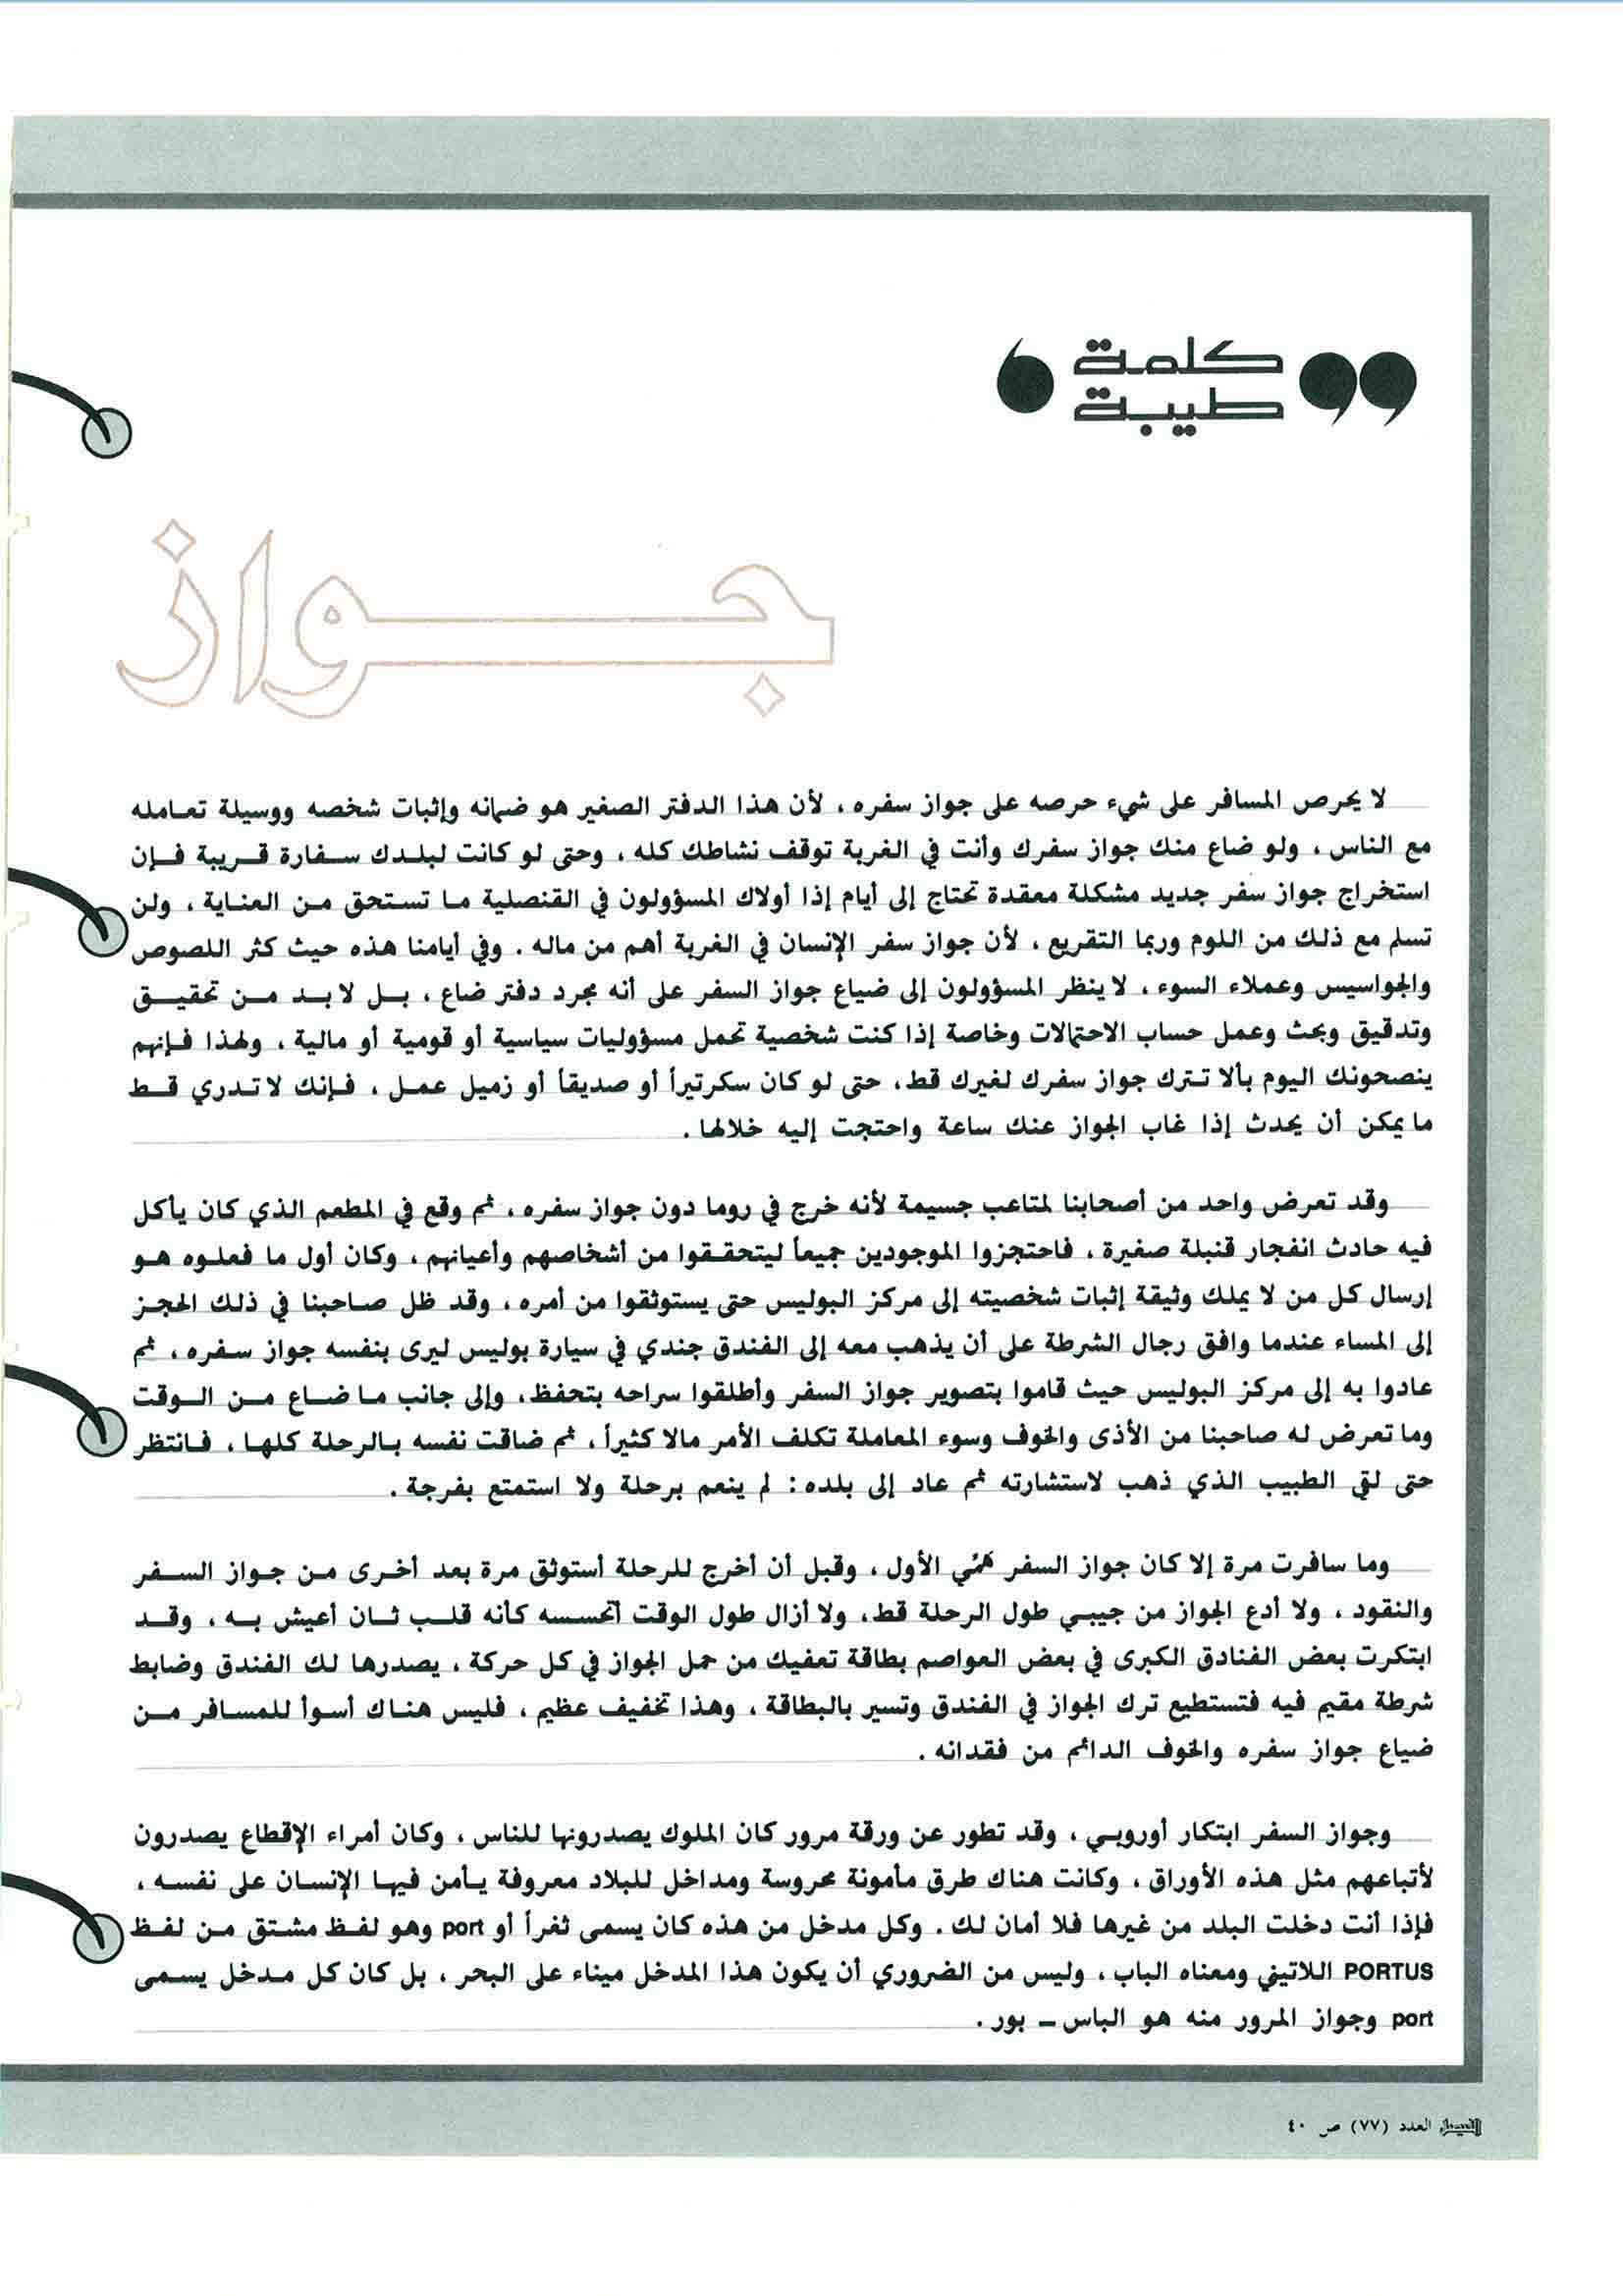 كلمة
طيبة
جواز
لا يحرص المسافر على شيء حرصه على جواز سفره ، لأن هذا الدفتر الصغير هو ضمانه وإثبات شخصه ووسيلة تعامله
مع الناس ، ولو ضاع منك جواز سفرك وأنت في الغربة توقف نشاطك كله ، وحتى لو كانت لبلدك سفارة قريبة فإن
استخراج جواز سفر جديد مشكلة معقدة تحتاج إلى أيام إذا أولاك المسؤولون في القنصلية ما تستحق من العناية ، ولن
تسلم مع ذلك من اللوم وربما التقريع ، لأن جواز سفر الإنسان في الغربة أهم من ماله . وفي أيامنا هذه حيث كثر اللصوص
والجواسيس وعملاء السوء ، لا ينظر المسؤولون إلى ضياع جواز السفر على أنه مجرد دفتر ضاع ، بل لا بد من تحقيق
وتدقيق وبحث وعمل حساب الاحتمالات وخاصة إذا كنت شخصية تحمل مسؤوليات سياسية أو قومية أو مالية ، ولهذا فإنهم
ينصحونك اليوم بألا تترك جواز سفرك لغيرك قط ، حتى لو كان سكرتيراً أو صديقاً أو زميل عمل ، فإنك لا تدري قط
ما يمكن أن يحدث إذا غاب الجواز عنك ساعة واحتجت إليه خلالها .
وقد تعرض واحد من أصحابنا لمتاعب جسيمة لأنه خرج في روما دون جواز سفره ، ثم وقع في المطعم الذي كان يأكل
فيه حادث انفجار قنبلة صغيرة ، فاحتجزوا الموجودين جميعاً ليتحققوا من أشخاصهم وأعيانهم ، وكان أول ما فعلوه هو
إرسال كل من لا يملك وثيقة إثبات شخصيته إلى مركز البوليس حتى يستوثقوا من أمره ، وقد ظل صاحبنا في ذلك الحجز
إلى المساء عندما وافق رجال الشرطة على أن يذهب معه إلى الفندق جندي في سيارة بوليس ليرى بنفسه جواز سفره ، ثم
عادوا به إلى مركز البوليس حيث قاموا بتصوير جواز السفر وأطلقوا سراحه بتحفظ ، وإلى جانب ما ضاع من الوقت
وما تعرض له صاحبنا من الأذى والخوف وسوء المعاملة تكلف الأمر مالا كثيراً ، ثم ضاقت نفسه بالرحلة كلها ، فانتظر
حتى لقي الطبيب الذي ذهب لاستشارته ثم عاد إلى بلده : لم ينعم برحلة ولا استمتع بفرجة .
وما سافرت مرة إلا كان جواز السفر همّي الأول ، وقبل أن أخرج للرحلة أستوثق مرة بعد أخرى من جواز السفر
والنقود ، ولا أدع الجواز من جيبي طول الرحلة قط ، ولا أزال طول الوقت أتحسسه كأنه قلب ثان أعيش به ، وقد
ابتكرت بعض الفنادق الكبرى في بعض العواصم بطاقة تعفيك من حمل الجواز في كل حركة ، يصدرها لك الفندق وضابط
شرطة مقيم فيه فتستطيع ترك الجواز في الفندق وتسير بالبطاقة ، وهذا تخفيف عظيم ، فليس هناك أسوأ للمسافر من
ضياع جواز سفره والخوف الدائم من فقدانه .
وجواز السفر ابتكار أوروبي ، وقد تطور عن ورقة مرور كان الملوك يصدرونها للناس ، وكان أمراء الإقطاع يصدرون
لأتباعهم مثل هذه الأوراق ، وكانت هناك طرق مأمونة محروسة ومداخل للبلاد معروفة يأمن فيها الإنسان على نفسه ،
فإذا أنت دخلت البلد من غيرها فلا أمان لك . وكل مدخل من هذه كان يسمى ثغراً أو port وهو لفظ مشتق من لفظ
PORTUS اللاتيني ومعناه الباب ، وليس من الضروري أن يكون هذا المدخل ميناء على البحر ، بل كان كل مدخل يسمى
port وجواز المرور منه هو الباس ــ بور .
العدد (٧٧) ص ٤٠